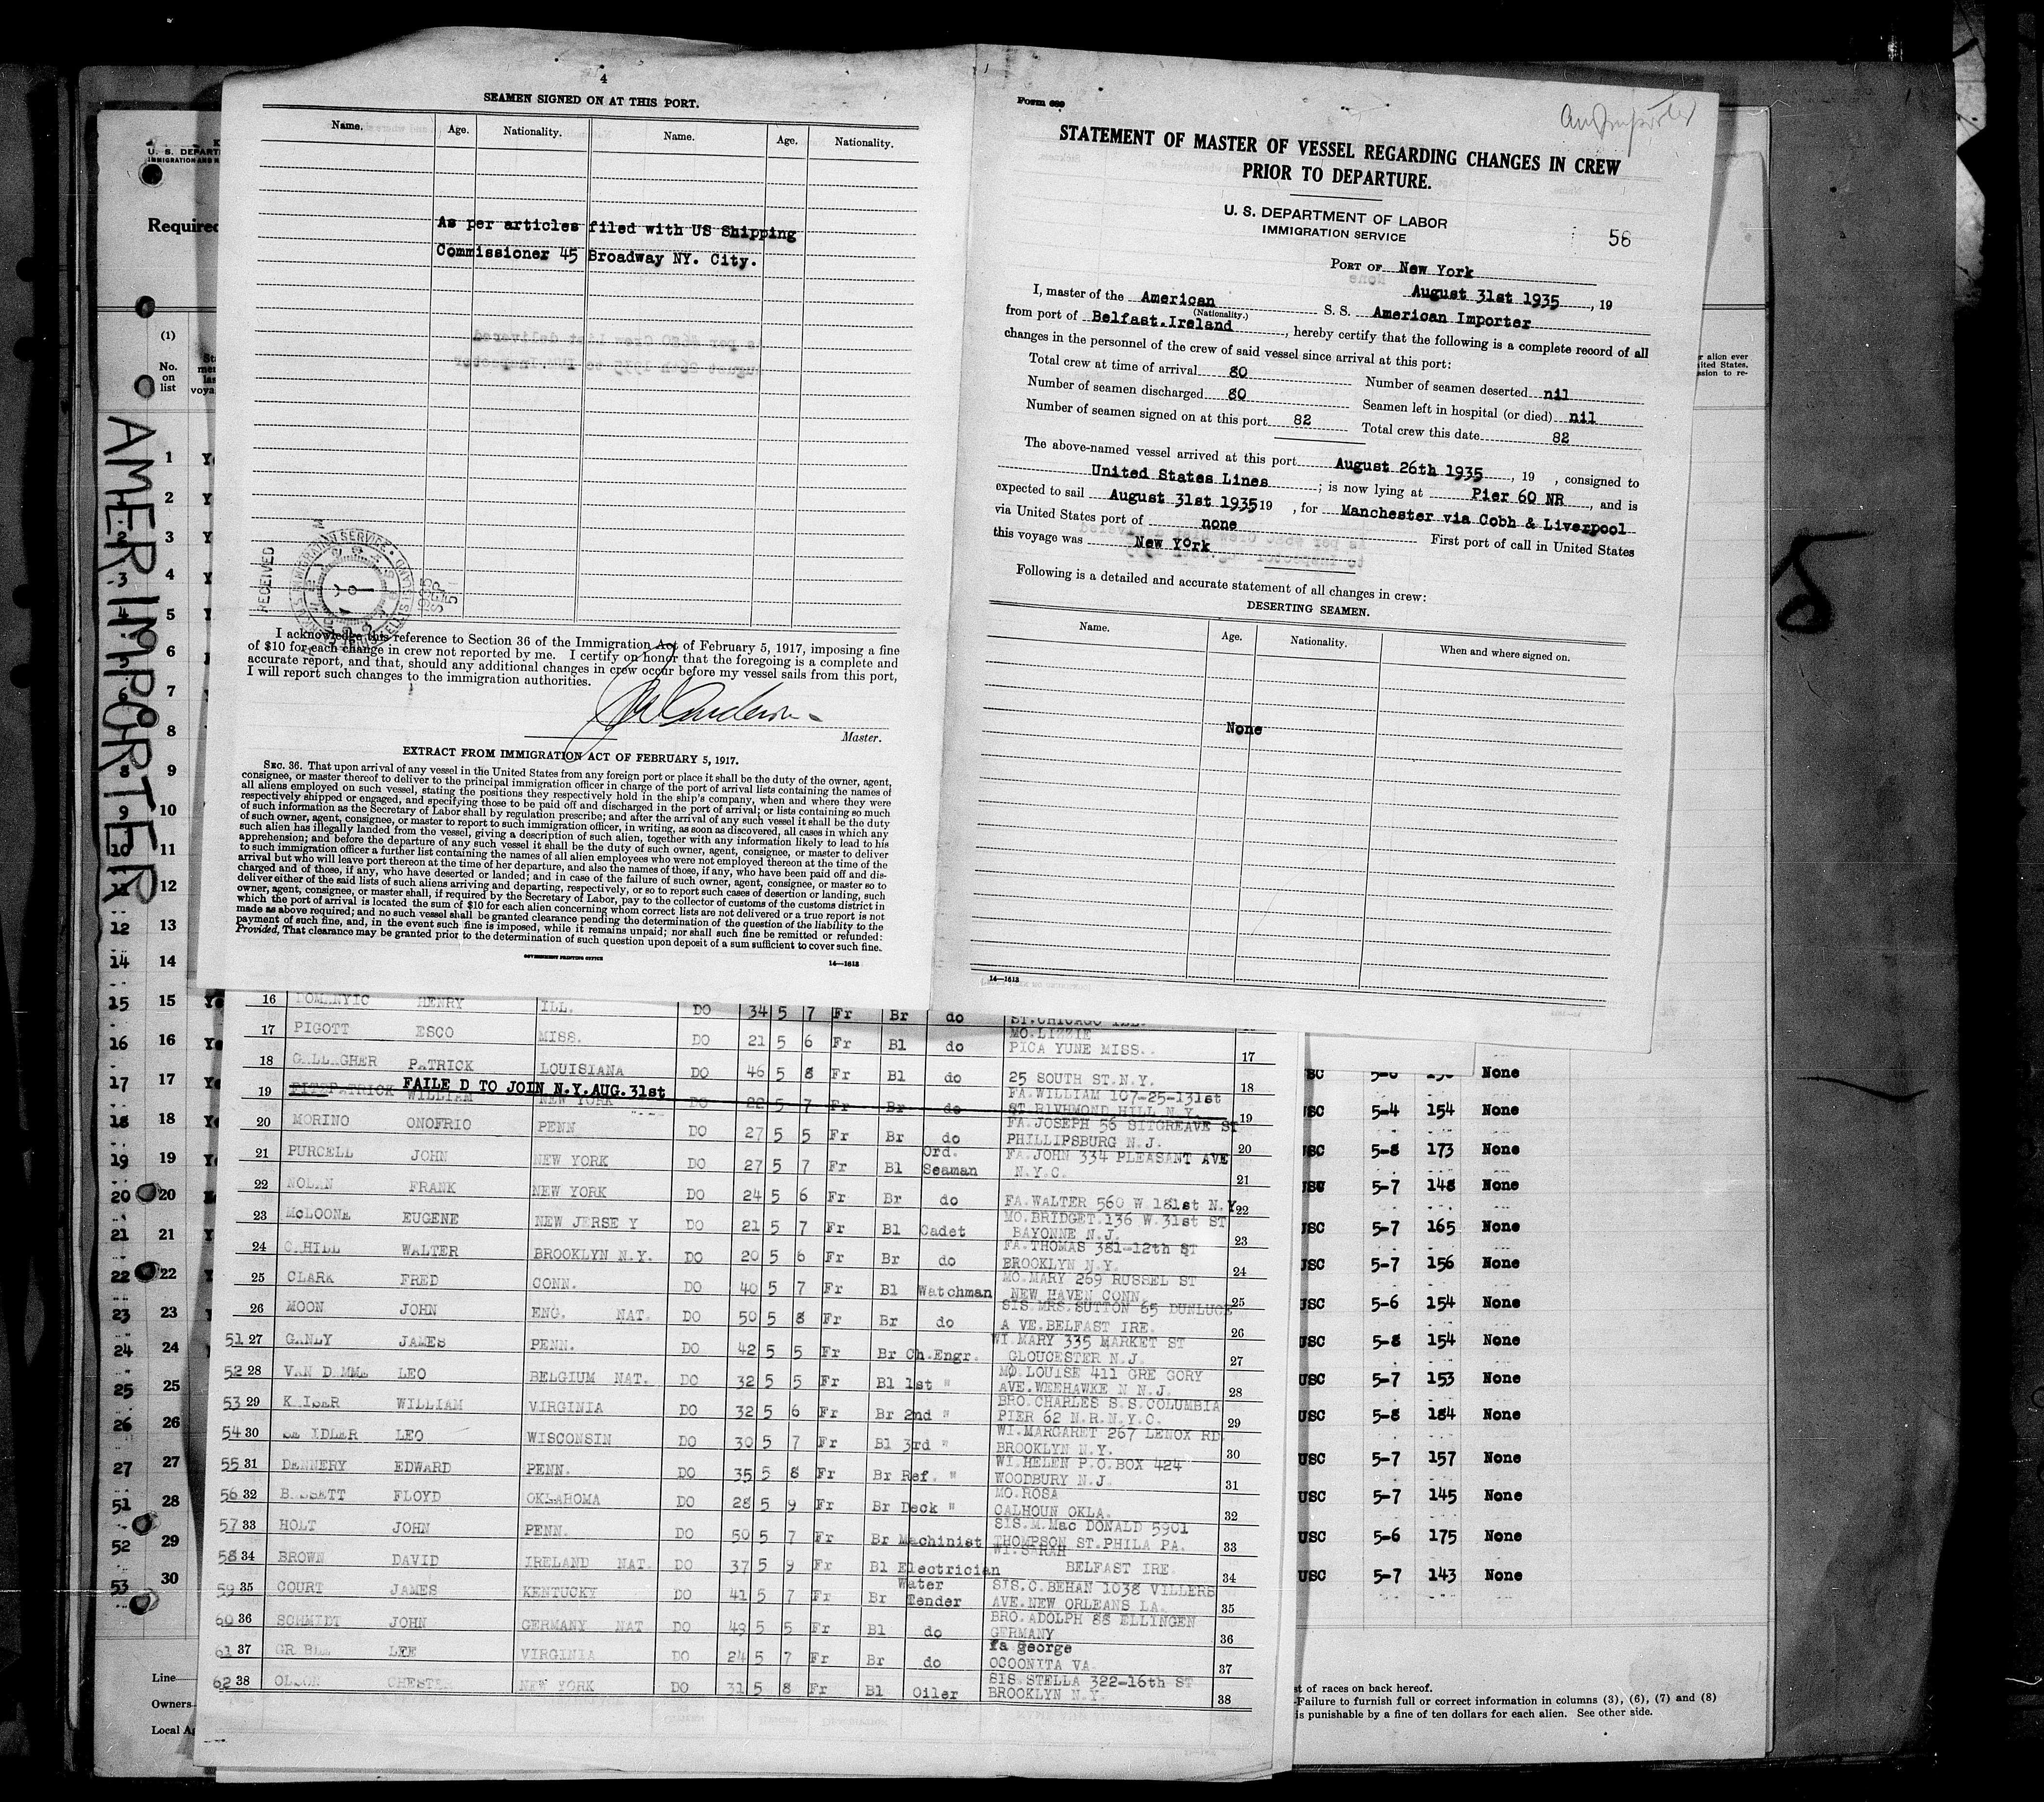 4
SEAMEN SIGNED ON AT THIS PORT.
Name. Age. Nationality. Name. Age. Nationality.
As per articles filed with US Shipping
Commissioner 45 Broadway NY. City.
RECEIVED
I acknowledge this reference to Section 36 of the Immigration Act of February 5, 1917, imposing a fine
of $10 for each change in crew not reported by me. I certify on honor that the foregoing is a complete and
accurate report, and that, should any additional changes in crew occur before my vessel sails from this port,
I will report such changes to the immigration authorities.
Master.
EXTRACT FROM IMMIGRATION ACT OF FEBRUARY 5, 1917.
SEC. 36. That upon arrival of any vessel in the United States from any foreign port or place it shall be the duty of the owner, agent,
consignee, or master thereof to deliver to the principal immigration officer in charge of the port of arrival lists containing the names of
all aliens employed on such vessel, stating the positions they respectively hold in the ship's company, when and where they were
respectively shipped or engaged, and specifying those to be paid off and discharged in the port of arrival; or lists containing so much
of such information as the Secretary of Labor shall by regulation prescribe; and after the arrival of any such vessel it shall be the duty
of such owner, agent, consignee, or master to report to such immigration officer, in writing, as soon as discovered, all cases in which any
such alien has illegally landed from the vessel, giving a description of such alien, together with any information likely to lead to his
apprehension; and before the departure of any such vessel it shall be the duty of such owner, agent, consignee, or master to deliver
to such immigration officer a further list containing the names of all alien employees who were not employed thereon at the time of the
arrival but who will leave port thereon at the time of her departure, and also the names of those, if any, who have been paid off and dis-
charged and of those, if any, who have deserted or landed; and in case of the failure of such owner, agent, consignee, or master so to
deliver either of the said lists of such aliens arriving and departing, respectively, or so to report such cases of desertion or landing, such
owner, agent, consignee, or master shall, if required by the Secretary of Labor, pay to the collector of customs of the customs district in
which the port of arrival is located the sum of $10 for each alien concerning whom correct lists are not delivered or a true report is not
made as above required; and no such vessel shall be granted clearance pending the determination of the question of the liability to the
payment of such fine, and, in the event such fine is imposed, while it remains unpaid; nor shall such fine be remitted or refunded:
Provided, That clearance may be granted prior to the determination of such question upon deposit of a sum sufficient to cover such fine.
GOVERNMENT PRINTING OFFICE 14—1613
Form 689
STATEMENT OF MASTER OF VESSEL REGARDING CHANGES IN CREW
PRIOR TO DEPARTURE.
U. S. DEPARTMENT OF LABOR
IMMIGRATION SERVICE
56
PORT OF New York
August 31st 1935, 19
I, master of the American S. S. American Importer
(Nationality.)
from port of Belfast.Ireland, hereby certify that the following is a complete record of all
changes in the personnel of the crew of said vessel since arrival at this port:
Total crew at time of arrival 80 Number of seamen deserted nil
Number of seamen discharged 80 Seamen left in hospital (or died) nil
Number of seamen signed on at this port 82 Total crew this date 82
The above-named vessel arrived at this port August 26th 1935, 19 , consigned to
United States Lines ; is now lying at Pier 60 NR, and is
expected to sail August 31st 1935 19 , for Manchester via Cobh & Liverpool
via United States port of none First port of call in United States
this voyage was New York
Following is a detailed and accurate statement of all changes in crew:
DESERTING SEAMEN.
Name. Age. Nationality. When and where signed on.
None
14—1613
AMER IMPORTER
Required
(1)
No.
on
list
16 DOMANYIC HENRY ILL. DO 34 5 7 Fr Br do ST.CHICAGO ILL.
17 PIGOTT ESCO MISS. DO 21 5 6 Fr Bl do MO.LIZZIE PICA YUNE MISS. 17
18 GALLAGHER PATRICK LOUISIANA DO 46 5 8 Fr Bl do 25 SOUTH ST.N.Y. 18
19 FITZPATRICK WILLIAM FAILE D TO JOIN N.Y.AUG.31st NEW YORK DO 22 5 7 Fr Br do FA.WILLIAM 107-25-131st ST.RIVHMOND HILL N.Y. 19
20 MORINO ONOFRIO PENN DO 27 5 5 Fr Br do FA.JOSEPH 56 SITGREAVE ST PHILLIPSBURG N.J. 20
21 PURCELL JOHN NEW YORK DO 27 5 7 Fr Bl Ord. Seaman FA.JOHN 334 PLEASANT AVE N.Y.C. 21
22 NOLAN FRANK NEW YORK DO 24 5 6 Fr Br do FA.WALTER 560 W 181st N.Y. 22
23 McLOONE EUGENE NEW JERSE Y DO 21 5 7 Fr Bl Cadet MO.BRIDGET.136 W.31st ST BAYONNE N.J. 23
24 CAHILL WALTER BROOKLYN N.Y. DO 20 5 6 Fr Br do FA.THOMAS 381-12th ST BROOKLYN N.Y. 24
25 CLARK FRED CONN. DO 40 5 7 Fr Bl Watchman MO.MARY 269 RUSSEL ST NEW HAVEN CONN. 25
26 MOON JOHN ENG. NAT. DO 50 5 8 Fr Br do SIS.MRS.SUTTON 65 DUNLUCE A VE.BELFAST IRE. 26
51 27 GANLY JAMES PENN. DO 42 5 5 Fr Br Ch.Engr. WI.MARY 335 MARKET ST GLOUCESTER N.J. 27
52 28 VAN DAMME LEO BELGIUM NAT. DO 32 5 5 Fr Bl 1st " MO.LOUISE 411 GRE GORY AVE.WEEHAWKE N N.J. 28
53 29 KAISER WILLIAM VIRGINIA DO 32 5 6 Fr Br 2nd " BRO.CHARLES S.S.COLUMBIA PIER 62 N.R.N.Y.C. 29
54 30 SE IDLER LEO WISCONSIN DO 30 5 7 Fr Bl 3rd " WI.MARGARET 267 LENOX RD BROOKLYN N.Y. 30
55 31 DENNERY EDWARD PENN. DO 35 5 8 Fr Br Ref. " WI.HELEN P.O.BOX 424 WOODBURY N.J. 31
56 32 BASSETT FLOYD OKLAHOMA DO 28 5 9 Fr Br Deck " MO.ROSA CALHOUN OKLA. 32
57 33 HOLT JOHN PENN. DO 50 5 7 Fr Br Machinist SIS.M.Mac DONALD 5901 THOMPSON ST.PHILA PA. 33
58 34 BROWN DAVID IRELAND NAT. DO 37 5 9 Fr Bl Electrician WI.SARAH BELFAST IRE. 34
59 35 COURT JAMES KENTUCKY DO 41 5 7 Fr Br Water Tender SIS.C.BEHAN 1038 VILLERS AVE.NEW ORLEANS LA. 35
60 36 SCHMIDT JOHN GERMANY NAT DO 49 5 5 Fr Bl do BRO.ADOLPH 88 ELLINGEN GERMANY 36
61 37 LEE VIRGINIA DO 24 5 7 Fr Br do fa george OCOONITA VA. 37
62 38 OLSON CHESTER NEW YORK DO 31 5 8 Fr Bl Oiler SIS.STELLA 322-16th ST BROOKLYN N.Y. 38
USC 5-4 154 None
USC 5-8 173 None
5-7 148 None
USC 5-7 165 None
USC 5-7 156 None
USC 5-6 154 None
USC 5-8 154 None
USC 5-7 153 None
USC 5-8 184 None
USC 5-7 157 None
USC 5-7 145 None
USC 5-6 175 None
USC 5-7 143 None
Line
Owners
Local
st of races on back hereof.
Failure to furnish full or correct information in columns (3), (6), (7) and (8)
is punishable by a fine of ten dollars for each alien. See other side.